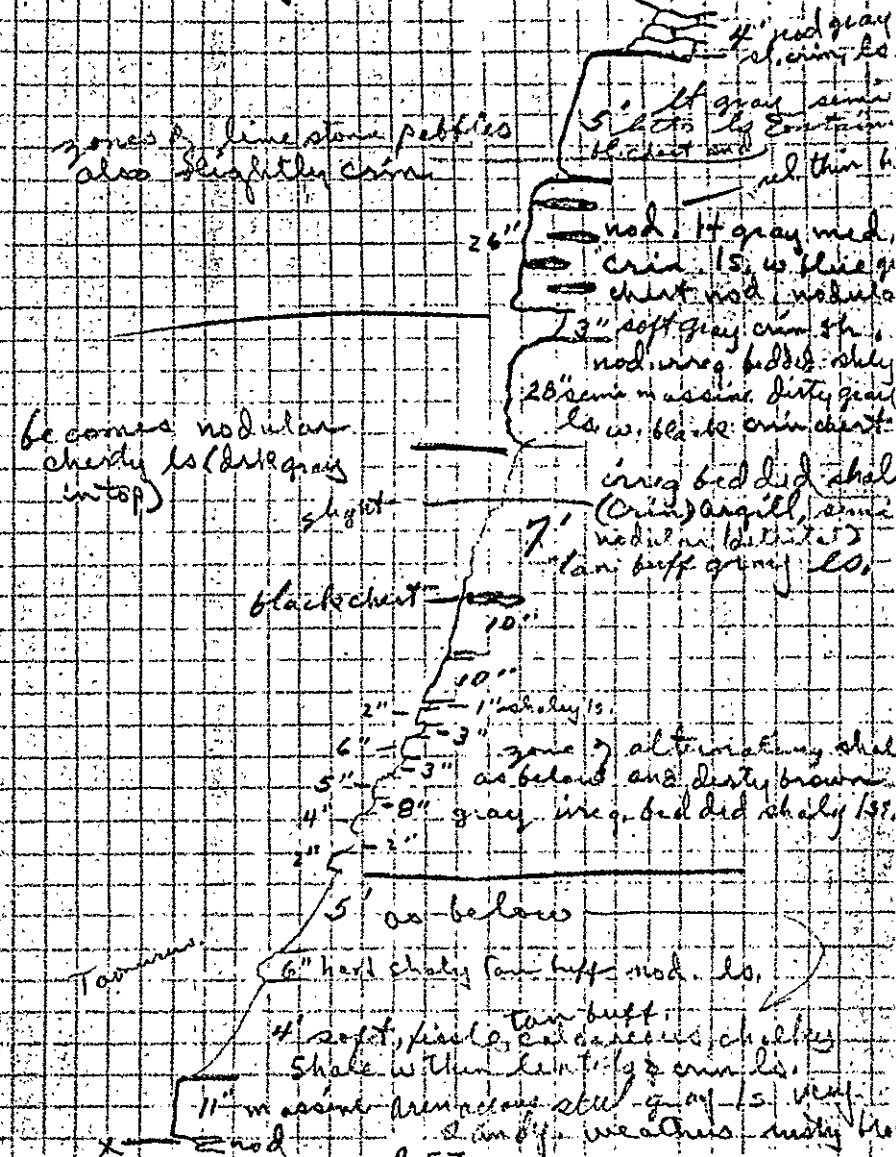 4' nod gray
sl. crin. ls.
5' lt gray semi
ls
bl. chert and
zones of limestone pebbles
also slightly crin.
rel. thin b
26" nod. lt gray med.
crin. ls. w blue g
chert nod, nodula
3" soft gray crin sh.
nod. irreg bedded shly
28" semi massive dirty gray
ls. w. black crin chert
becomes nodular
cherty ls (drk gray
in top)
irreg bedded shal
slight
(Crin) argill, semi
7' nodular (detrital?)
tan buff gray ls.
black chert
10"
10"
2" 1" shaley ls.
6" 3" zone of alternating shal
5" 3" as below and dirty brown
4" 8" gray irreg. bedded shaly lss.
2" 2"
5' as below
6" hard shaly tan buff nod. ls.
tan buff
4' soft, fissile, calcareous, chalky
shale w thin lent. of crin ls.
11" massive arenaceous steel gray ls very
x nod sandy, weathers rusty bro